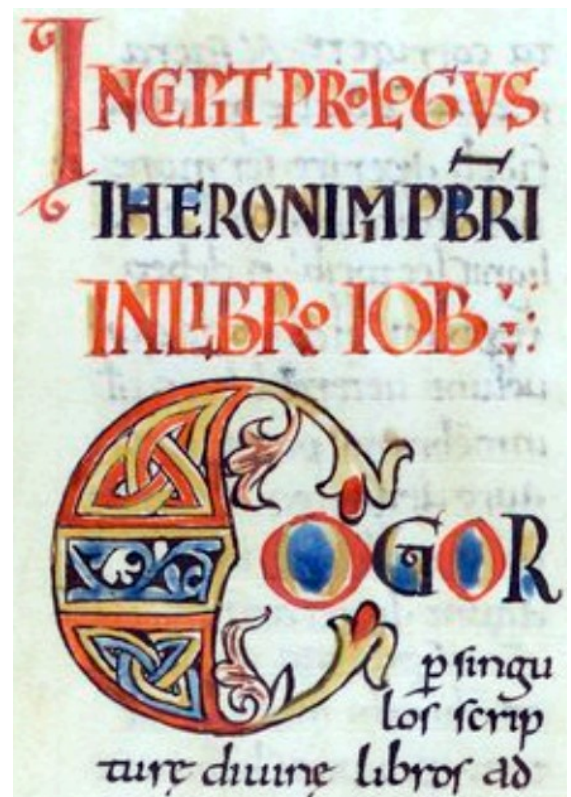 INCIPIT PROLOGVS
IHERONIMI PB̄RI
IN LIBRO IOB
COGOR
ꝑ singu
los scrip
turę diuinę libros ad